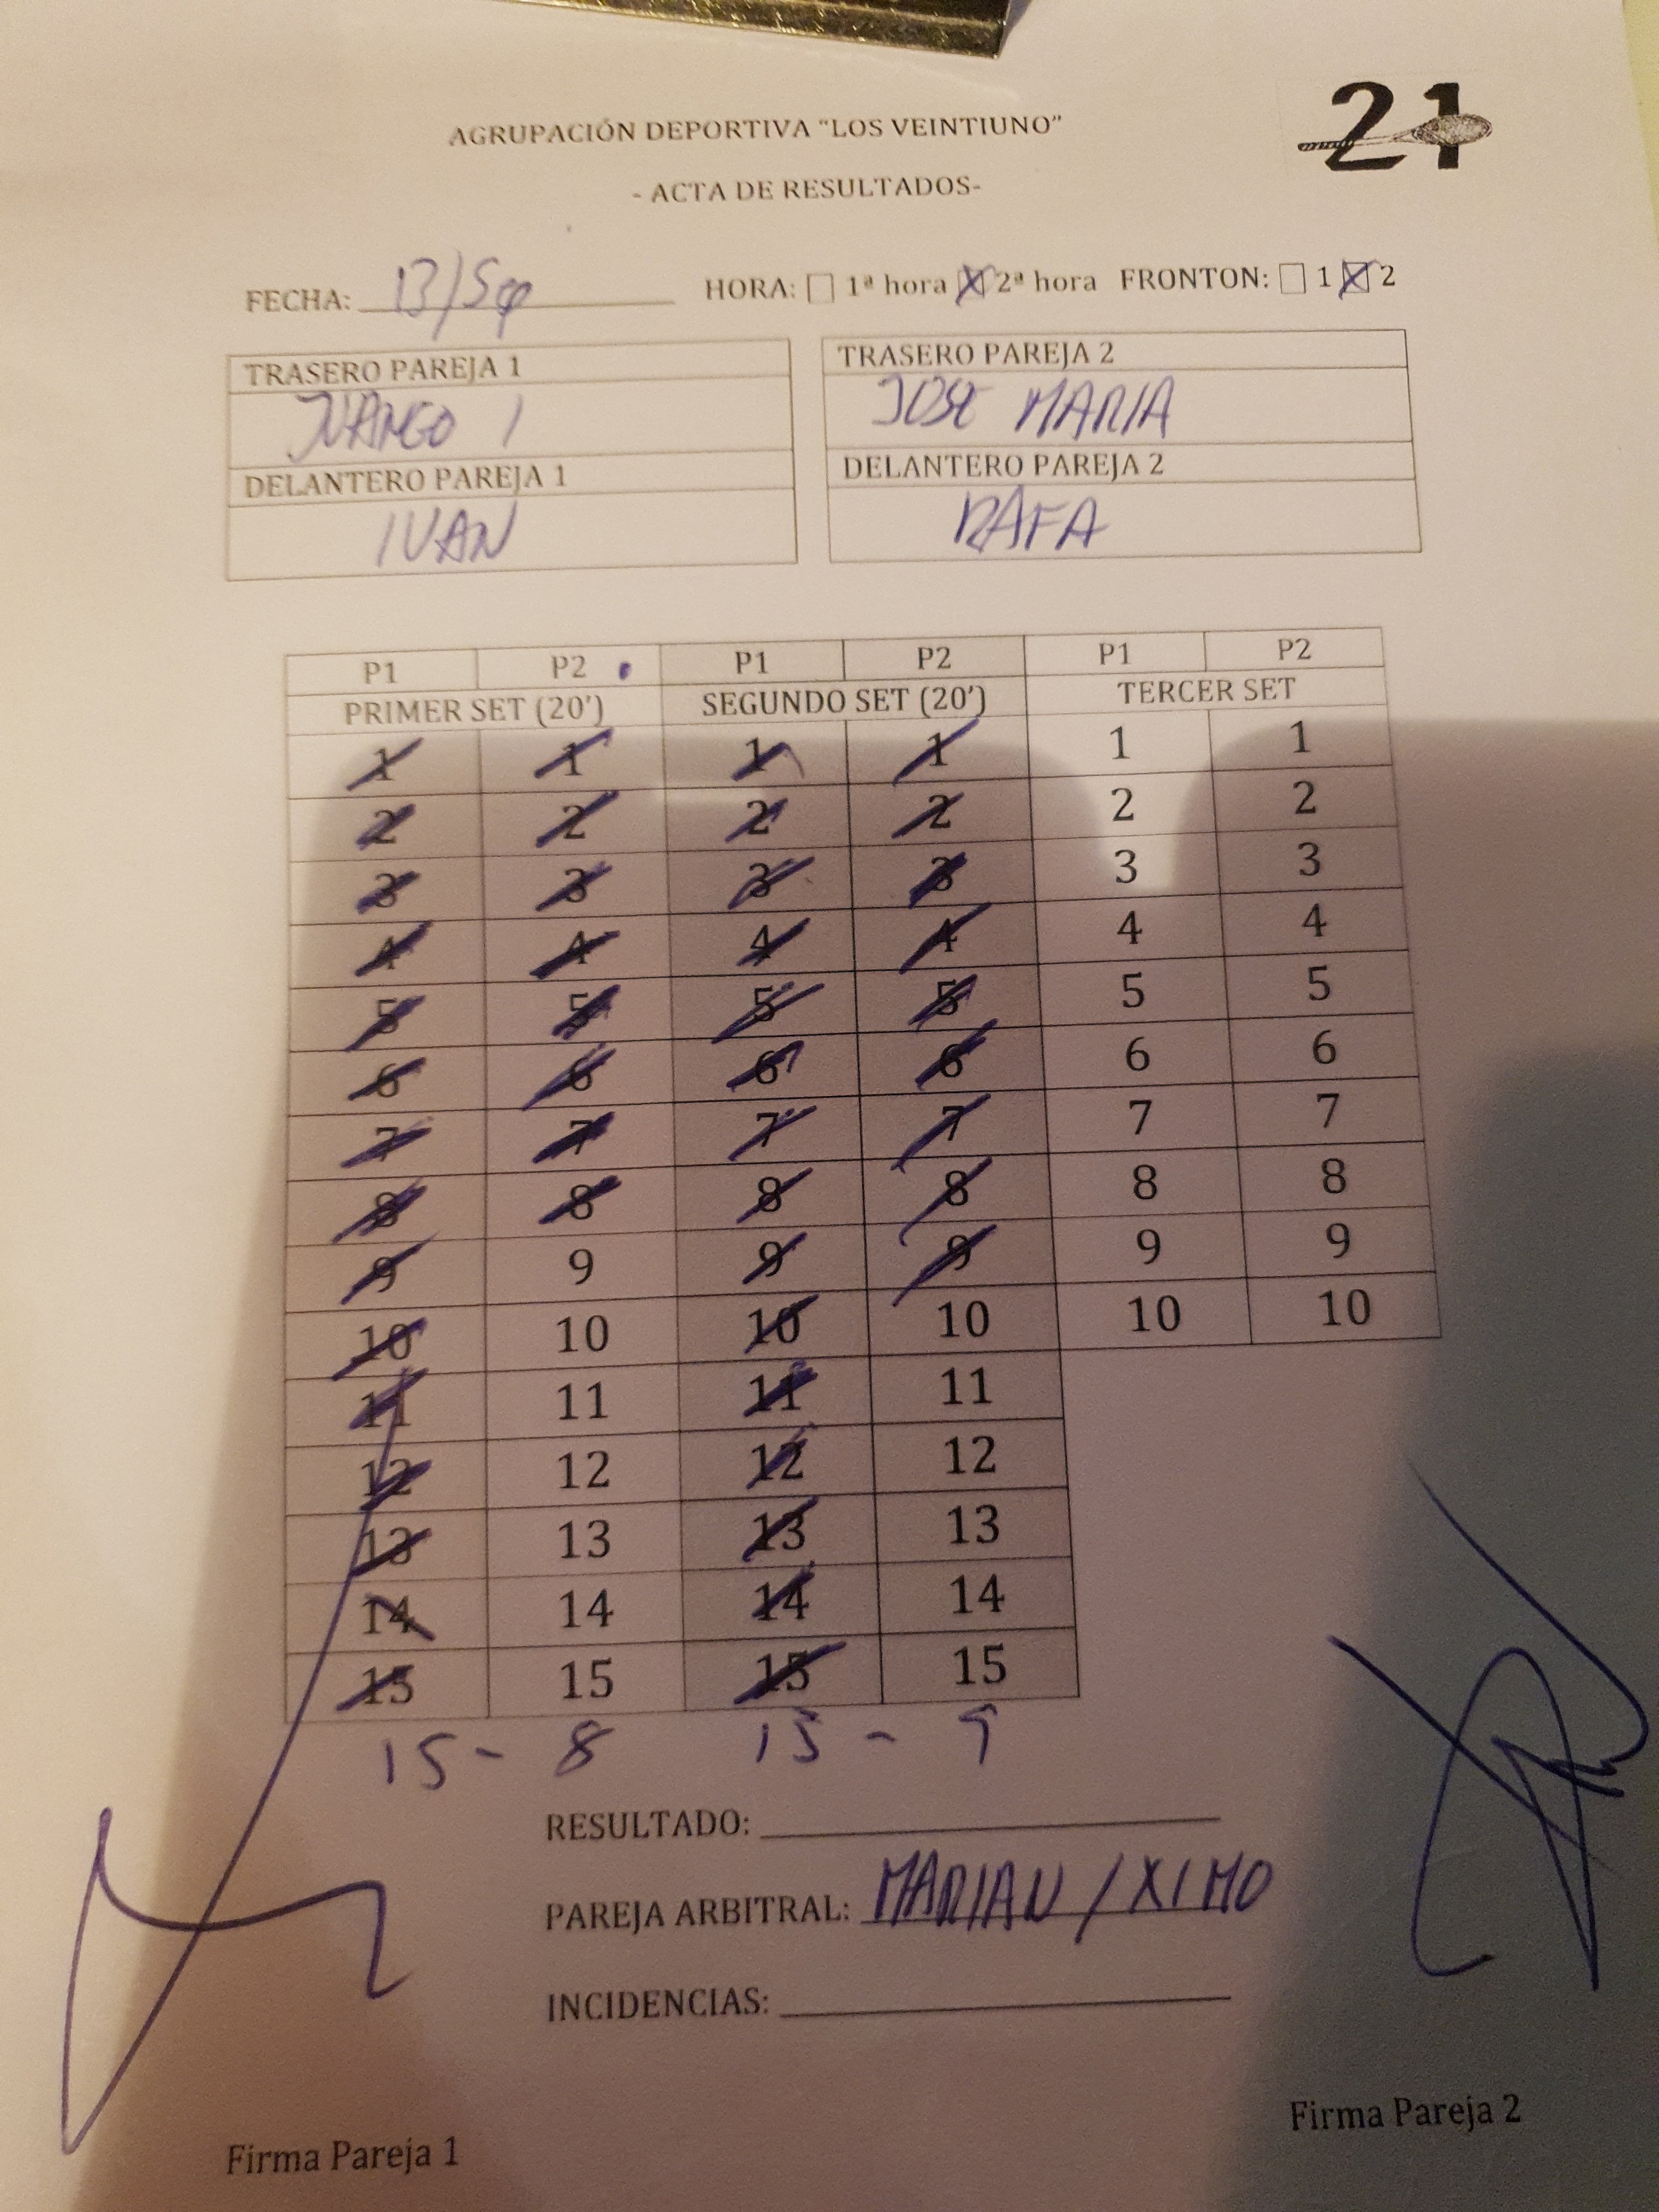 21
AGRUPACIÓN DEPORTIVA "LOS VEINTIUNO"
- ACTA DE RESULTADOS-
FECHA: 13/Sep HORA: 1ª hora 2ª hora FRONTON: 1 2
TRASERO PAREJA 1 TRASERO PAREJA 2
JOSE MARIA
DELANTERO PAREJA 1 DELANTERO PAREJA 2
IVAN RAFA
P1 P2 P1 P2 P1 P2
PRIMER SET (20') SEGUNDO SET (20') TERCER SET
1 1 1 1 1 1
2 2 2 2 2 2
3 3 3 3 3 3
4 4 4 4 4 4
5 5 5 5 5 5
6 6 6 6 6 6
7 7 7 7 7 7
8 8 8 8 8 8
9 9 9 9 9 9
10 10 10 10 10 10
11 11 11 11
12 12 12 12
13 13 13 13
14 14 14 14
15 15 15 15
15 - 8 15 - 9
RESULTADO:
PAREJA ARBITRAL: MARIAN / XIMO
INCIDENCIAS:
Firma Pareja 1 Firma Pareja 2